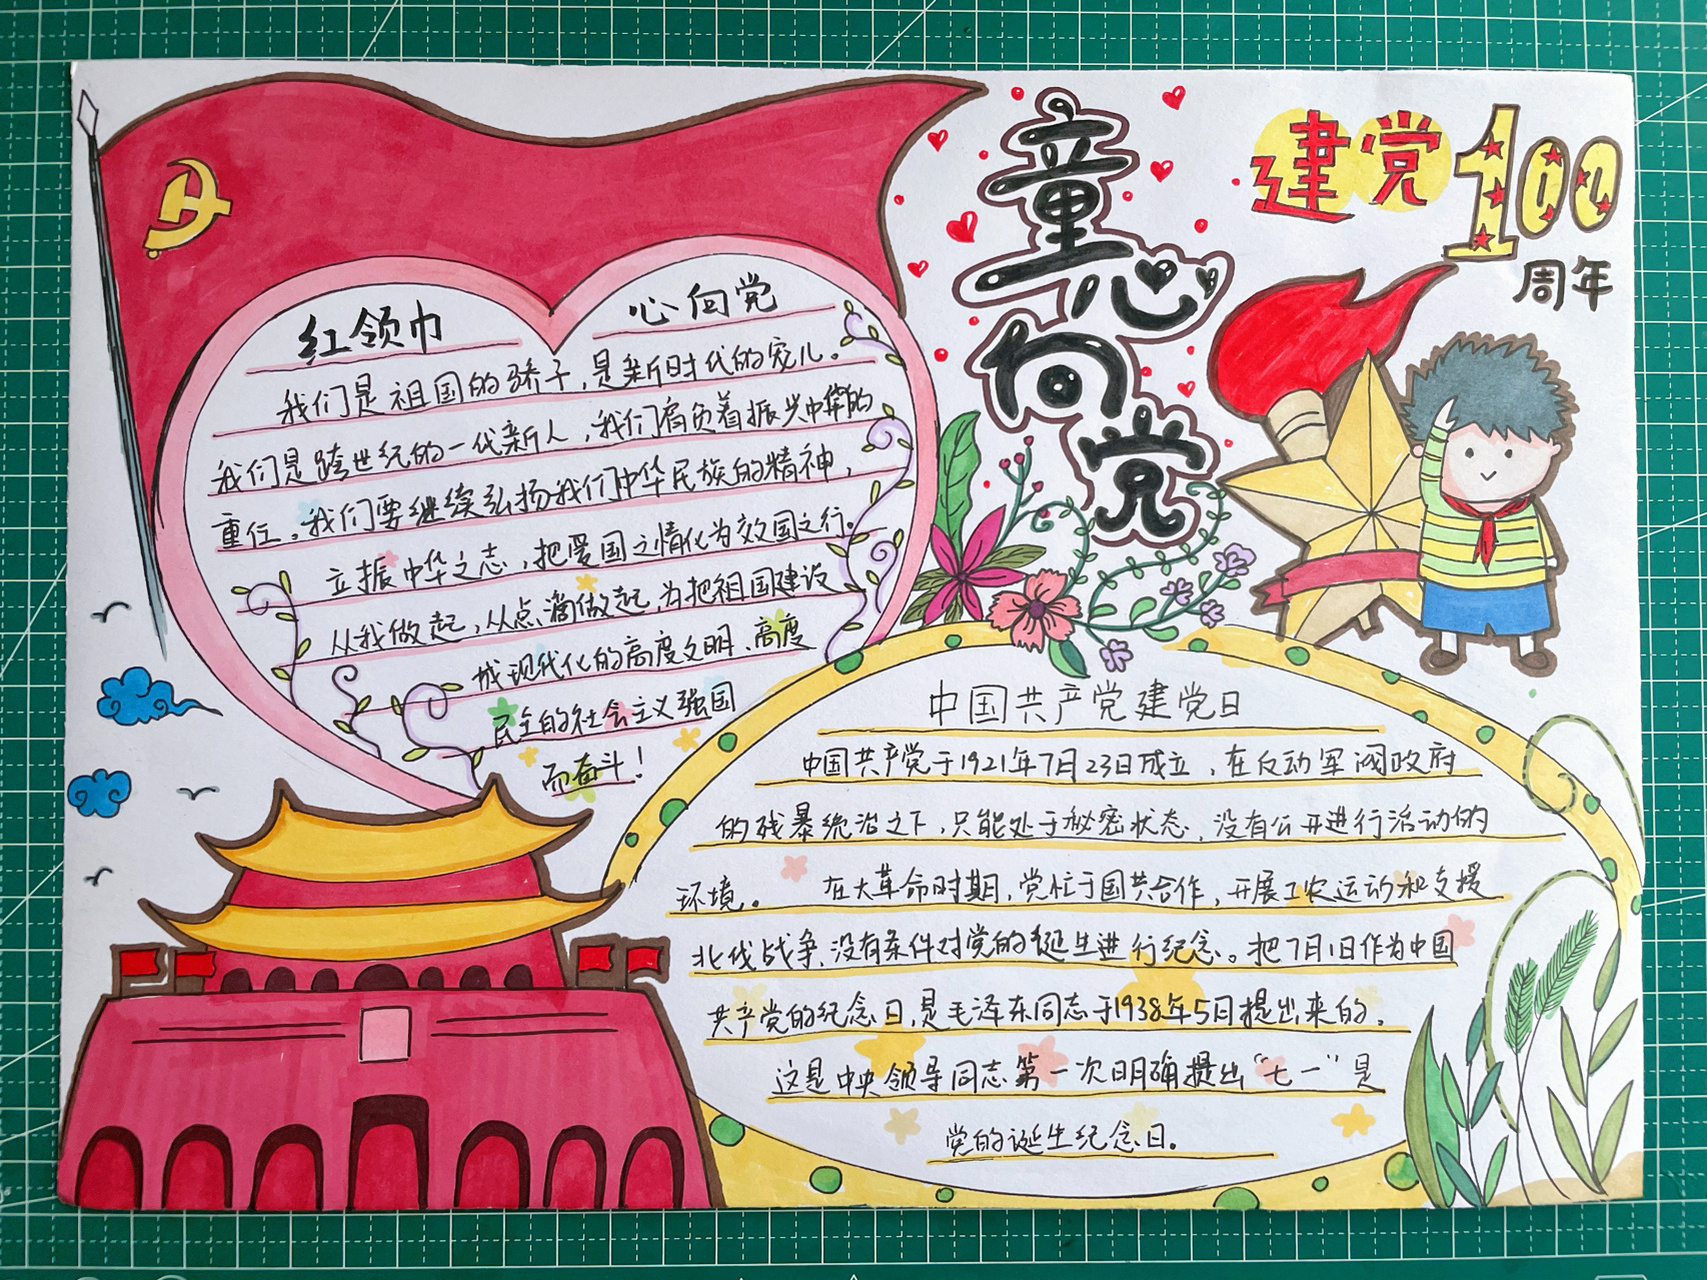 童心向党
建党100
周年
红领巾 心向党
我们是祖国的骄子,是新时代的宠儿。
我们是跨世纪的一代新人,我们肩负着振兴中华的
重任。我们要继续弘扬我们中华民族的精神,
立振中华之志,把爱国之情化为效国之行。
从我做起,从点滴做起,为把祖国建设
城现代化的高度文明、高度
民主的社会主义强国
而奋斗!
中国共产党建党日
中国共产党于1921年7月23日成立,在反动军阀政府
的残暴统治之下,只能处于秘密状态,没有公开进行活动的
环境。 在大革命时期,党忙于国共合作,开展工农运动和支援
北伐战争,没有条件对党的诞生进行纪念。把7月1日作为中国
共产党的纪念日,是毛泽东同志于1938年5月提出来的,
这是中央领导同志第一次明确提出“七一”是
党的诞生纪念日。